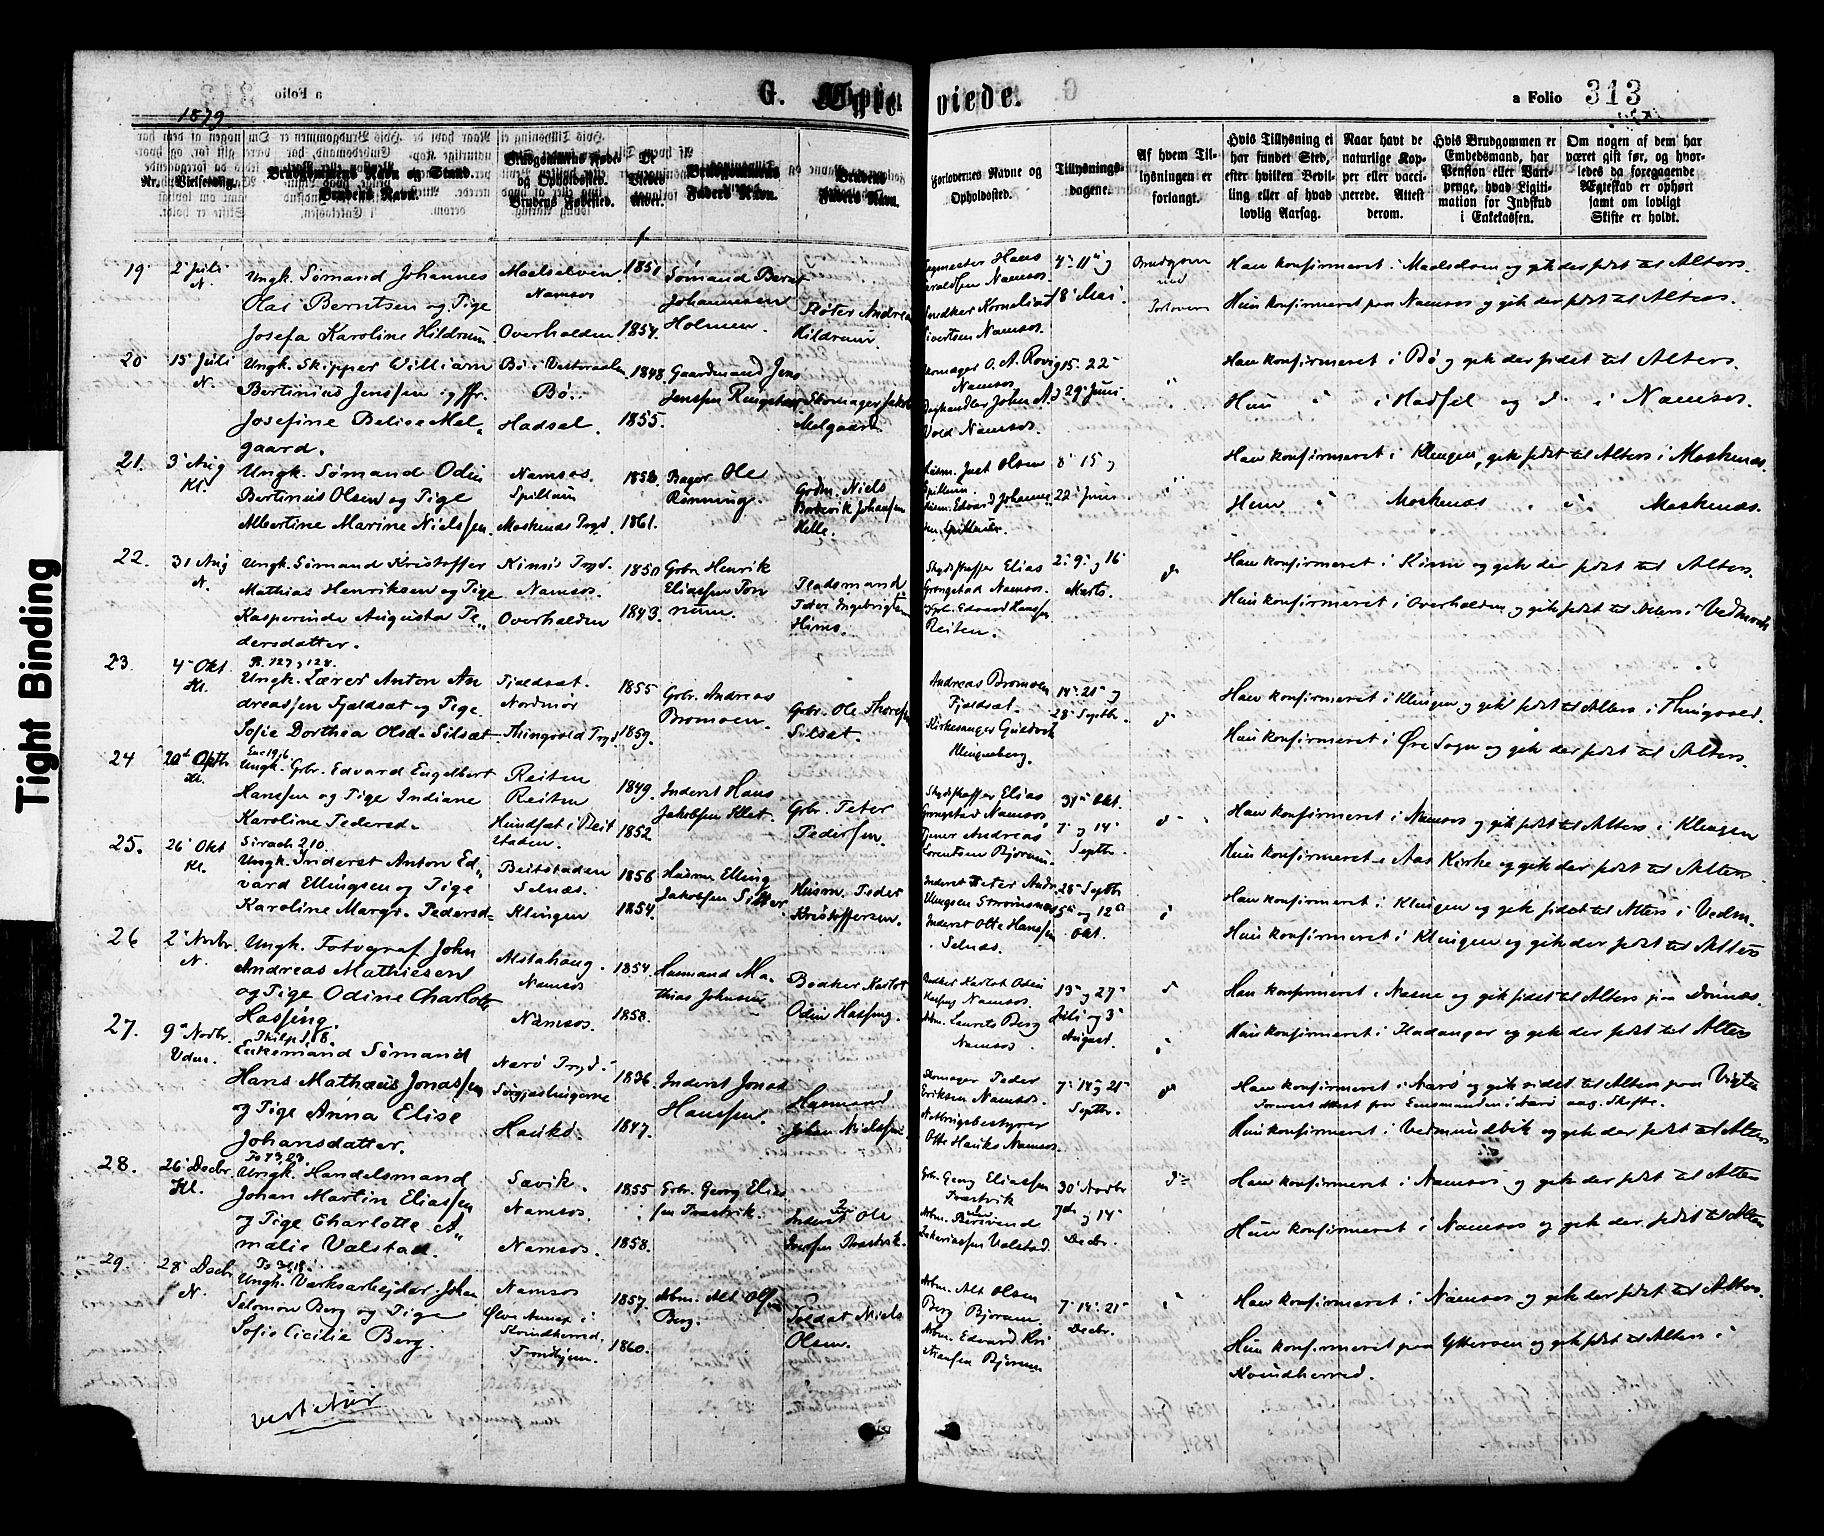 Tight Binding
a Folio
G. Egte
viede.
a Folio 313
1879
Nr.
Vielsesdag.
Brudgommens Navn og Stand.
Brudens Navn.
Brudgommens Fødested
og Opholdssted.
Brudens Fødested.
De
Viedes
Alder.
Brudgommens
Faders Navn.
Brudens
Faders Navn.
Forlovernes Navne og
Opholdssted.
Tillysnings-
dagene.
Af hvem Til-
lysningen er
forlangt.
Hvis Tillysning ei
har fundet Sted,
efter hvilken Bevil-
ling eller af hvad
lovlig Aarsag.
Naar havt de
naturlige Kop-
per eller vacci-
nerede. Attest
derom.
Hvis Brudgommen er
Embedsmand, har
Pension eller Vart-
penge, hvad Ligiti-
mation for Indskud
i Enkekassen.
Om nogen af dem har
været gift før, og hvor-
ledes da foregaaende
Ægteskab er ophørt
samt om lovligt
Skifte er holdt.
19 2 Juli
N.
Ungk. Sømand Johannes
Olai Berntsen og Pige
Josefa Karoline Hildrum
Maalselven
Namsos
Overhalden
1851
1854.
Sømand Bernt
Johannesen
Holmen.
Fløter Andreas
Hildrum.
4 11 og
18 Mai.
Brudgom
Forlovere
Han konfirmeret i Maalselven og gik der sidst til Alters.
Hun konfirmeret paa Namsos og gik der sidst til Alters.
20 15 Juli
N.
Ungk. Skipper William
Bertinius Jenssen og Jfr.
Josefine Belise Mel„
gaard.
Bø i Vesteraalen
Bø.
Hadsel.
1848
1855.
Gaardmand Jens
Jenssen Ringstad
Skomager Jakob
Melgaard
Skomager O. A. Rovig
Namsos
Vold Namsos.
15. 22
29 Juni
Han konfirmeret i Bø og gik der sidst til Alters.
Hun i Hadsel og i Namsos.
21. 3 Aug
Kl.
Ungk. Sømand Odin
Bertinius Olsen og Pige
Albertine Marine Nielssen.
Namsos.
Spillum
Moskenæs Prgd.
1853
1861.
Bager Ole
Rønning.
Grdm. Niels
Bordevik Johansen
Helle.
8 15 og
22 Juni
Han konfirmeret i Klingen, gik sidst til Alters i Moskenæs.
Hun Moskenæs Moskenæs.
22. 31 Aug
N.
Ungk. Sømand Kristoffer
Mathias Henriksen og Pige
Kasperinde Augusta Pe„
dersdatter.
Kinns Prgd.
Namsos.
Overhalden
1850
1843.
Grbr. Henrik
Eliassen Ton
num.
Pladsmand
Peder Ingebrigtsen
Himo.
Skydsskaffer Elias
Grongstad Namsos.
Grbr. Edvard Hanssen
Reiten.
2. 9 og 16
Marts.
Han konfirmeret i Kinn og gik der sidst til Alters.
Hun konfirmeret i Overhalden og gik sidst til Alters i Vedmunds
23 4 Okt
Kl.
R. 127 og 128.
Ungk. Lærer Anton An
dreassen Fjeldsæt og Pige
Sofie Dorthea Olsd. Silsæt
Fjeldsæt.
Nordmør
Thingvold Prgd
1855
1859.
Grbr. Andreas
Bromoen.
Grbr. Ole Thoresen
Silsæt.
Andreas Bromoen
Fjeldsæt.
Kirkesanger Guldvik
Klingenberg.
14. 21 og
28 Septbr.
Han konfirmeret i Klingen og gik sidst til Alters i Thingvold.
Hun konfirmeret i Øre Sogn og gik der sidst til Alters.
24
Kl.
Ungk. Grbr. Edvard Engelbert
Hanssen og Pige Indiane
Karoline Pedersd.
Reiten
Reiten
Hundsæt i Beit
staden.
1849.
1852.
Inderst Hans
Jakobsen Klet
Grbr. Peter
Pedersen.
Skydsskaffer Elias
Grongstad Namsos
Tjener Andreas
Lorentsen Bjørum.
7 og 14
Septbr.
Han konfirmeret i Namsos og gik sidst til Alters i Klingen
Hun konfirmeret i Aas Kirke og gik der sidst til Alters.
25. 26 Okt
Kl.
Sirach 2,10.
Ungk. Inderst Anton Ed„
vard Ellingsen og Pige
Karoline Margr. Pedersd.
Beitstaden
Selnæs.
Klingen
1856
1854.
Husm. Elling
Jakobsen Sitter
Husm. Peder
Kristoffersen.
Inderst Otte Hanssen
Selnæs.
28 Septbr
5 og 12
Okt.
Han konfirmeret i Klingen og gik sidst til Alters i Vedm.
Hun konfirmeret i Klingen og gik der sidst til Alters
26 2 Novbr
N.
Ungk. Fotograf John
Andreas Mathiesen
og Pige Odine Charlotte
Hassing.
Alstahaug.
Namsos
Namsos.
1854.
1858.
Husmand Ma-
thias Johnsen
Bødker Karlot
Odin Hassing.
Bødker Karlot Odin
Hassing Namsos.
Arbm. Laurits Berg
Namsos.
13 og 27
Juli og 3
August.
Han konfirmeret i Nesne og gik sidst til Alters paa Dønnæs.
Hun konfirmeret i Stadanger og gik der sidst til Alters
27. 9 Novbr.
Udm.
Philip 1,6 8.
Enkemand Sømand
Hans Mathæus Jonassen
og Pige Anna Elise
Johansdatter.
Nærø Prgd.
Hauko.
1836.
1847.
Inderst Jonas
Hanssen.
Husmand
Johan Nielssen.
Skomager Peder
Eriksen Namsos.
Otto Hauks Namsos.
7 14 og 21
Septbr.
Han konfirmeret i Nærø og gik sidst til Alters paa Vigten
Foreviist Attest fra Lensmanden i Nærø ang. Skifte.
Hun konfirmeret i Vedmundvik og gik der sidst til Alters
28. 26 Decbr
Kl.
Ps 73,23.
Ungk. Handelsmand
Johan Martin Eliassen
og Pige Charlotte A„
malie Valstad.
Savik.
Namsos.
Namsos
1855
1858.
Grbr. Georg Elias
sen Præstvik.
Inderst Ole
Grbr. Georg Eliassen
Præstvik
Arbm. Bersvend
Zakariassen Valstad.
30 Novbr
7de og 14
Decbr.
Han konfirmeret i Namsos og gik der sidst til Alters
Hun konfirmeret i Namsos og gik der sidst til Alters
29. 28 Decbr
N.
Ungk. Værksarbejder Johan
Salomon Berg og Pige
Sofie Cicilie Berg.
Namsos
Ølve Annex i
Kvindherred.
Trondhjem.
1857.
1860.
Arbm. Alt Olsen
Berg.
Soldat Niels
Olsen.
Arbm. Alt Olsen
Berg Bjørum.
Arbm. Edvard Kri
stiansen Bjørum
7 14. 21
Decbr.
Han konfirmeret i Namsos og gik der sidst til Alters.
Hun konfirmeret paa Ytterøen og gik sidst til Alters i
Kvindherred.